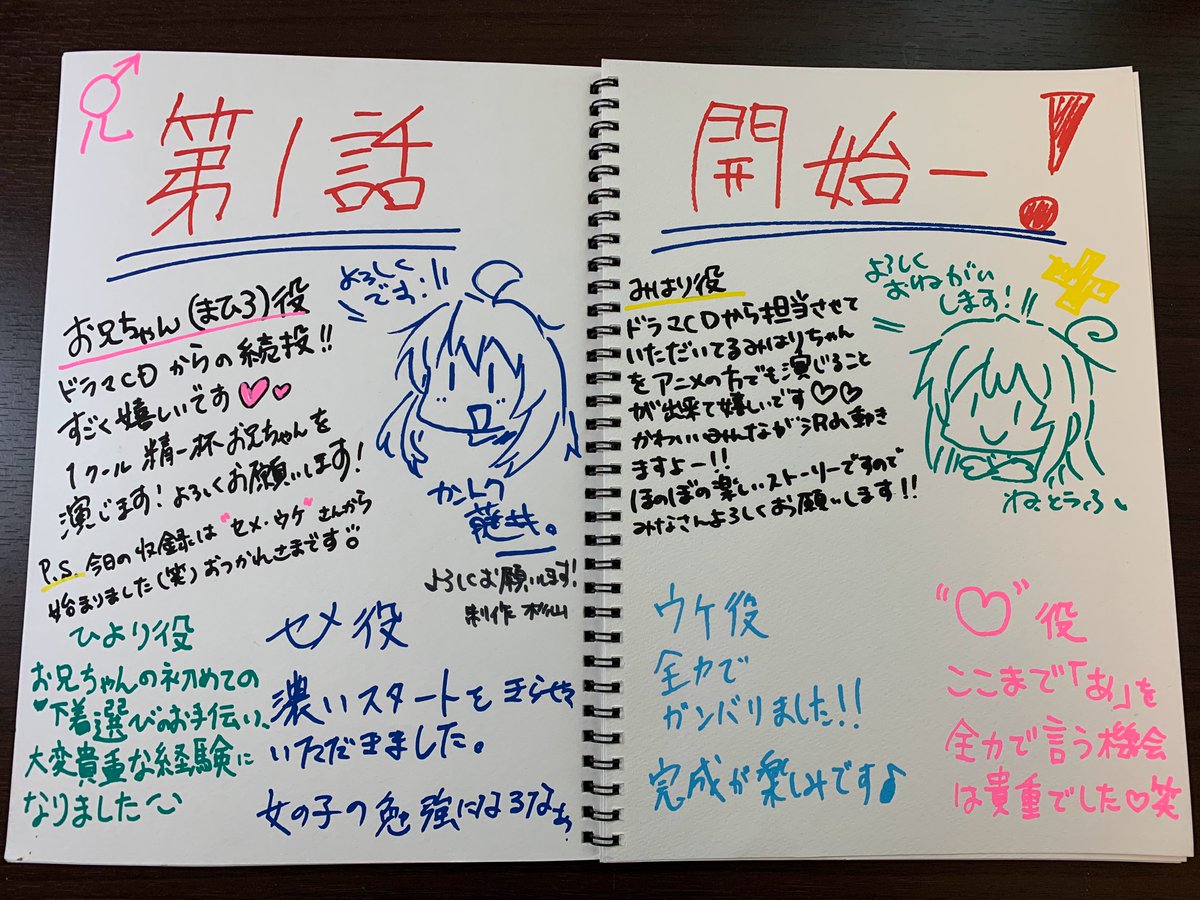 兄
第1話
お兄ちゃん(まひろ)役
ドラマCDからの続投!!
すごく嬉しいです♡♡
1クール精一杯お兄ちゃんを
演じます!よろしくお願いします!
P.S. 今日の収録は"セメ・ウケ"さんから
始まりました(笑)おつかれさまです
よろしく
です!!!
カントク
藤井。
よろしくお願いします!
制作 杉山
ひより役
お兄ちゃんの初めての
下着選びのお手伝い、
大変貴重な経験に
なりました
セメ役
濃いスタートをきらせて
いただきました。
女の子の勉強になるなぁ
開始ー!
みはり役
ドラマCDから担当させて
いただいてるみはりちゃん
をアニメの方でも演じること
が出来て嬉しいです♡♡
かわいいみんながヌルヌル動き
ますよー!!
ほのぼの楽しいストーリーですので
みなさんよろしくお願いします!!
よろしく
おねがい
します!!!
ねことうふ
ウケ役
全力で
ガンバリました!!
完成が楽しみです♪
"♡"役
ここまで「あ」を
全力で言う機会
は貴重でした♡笑